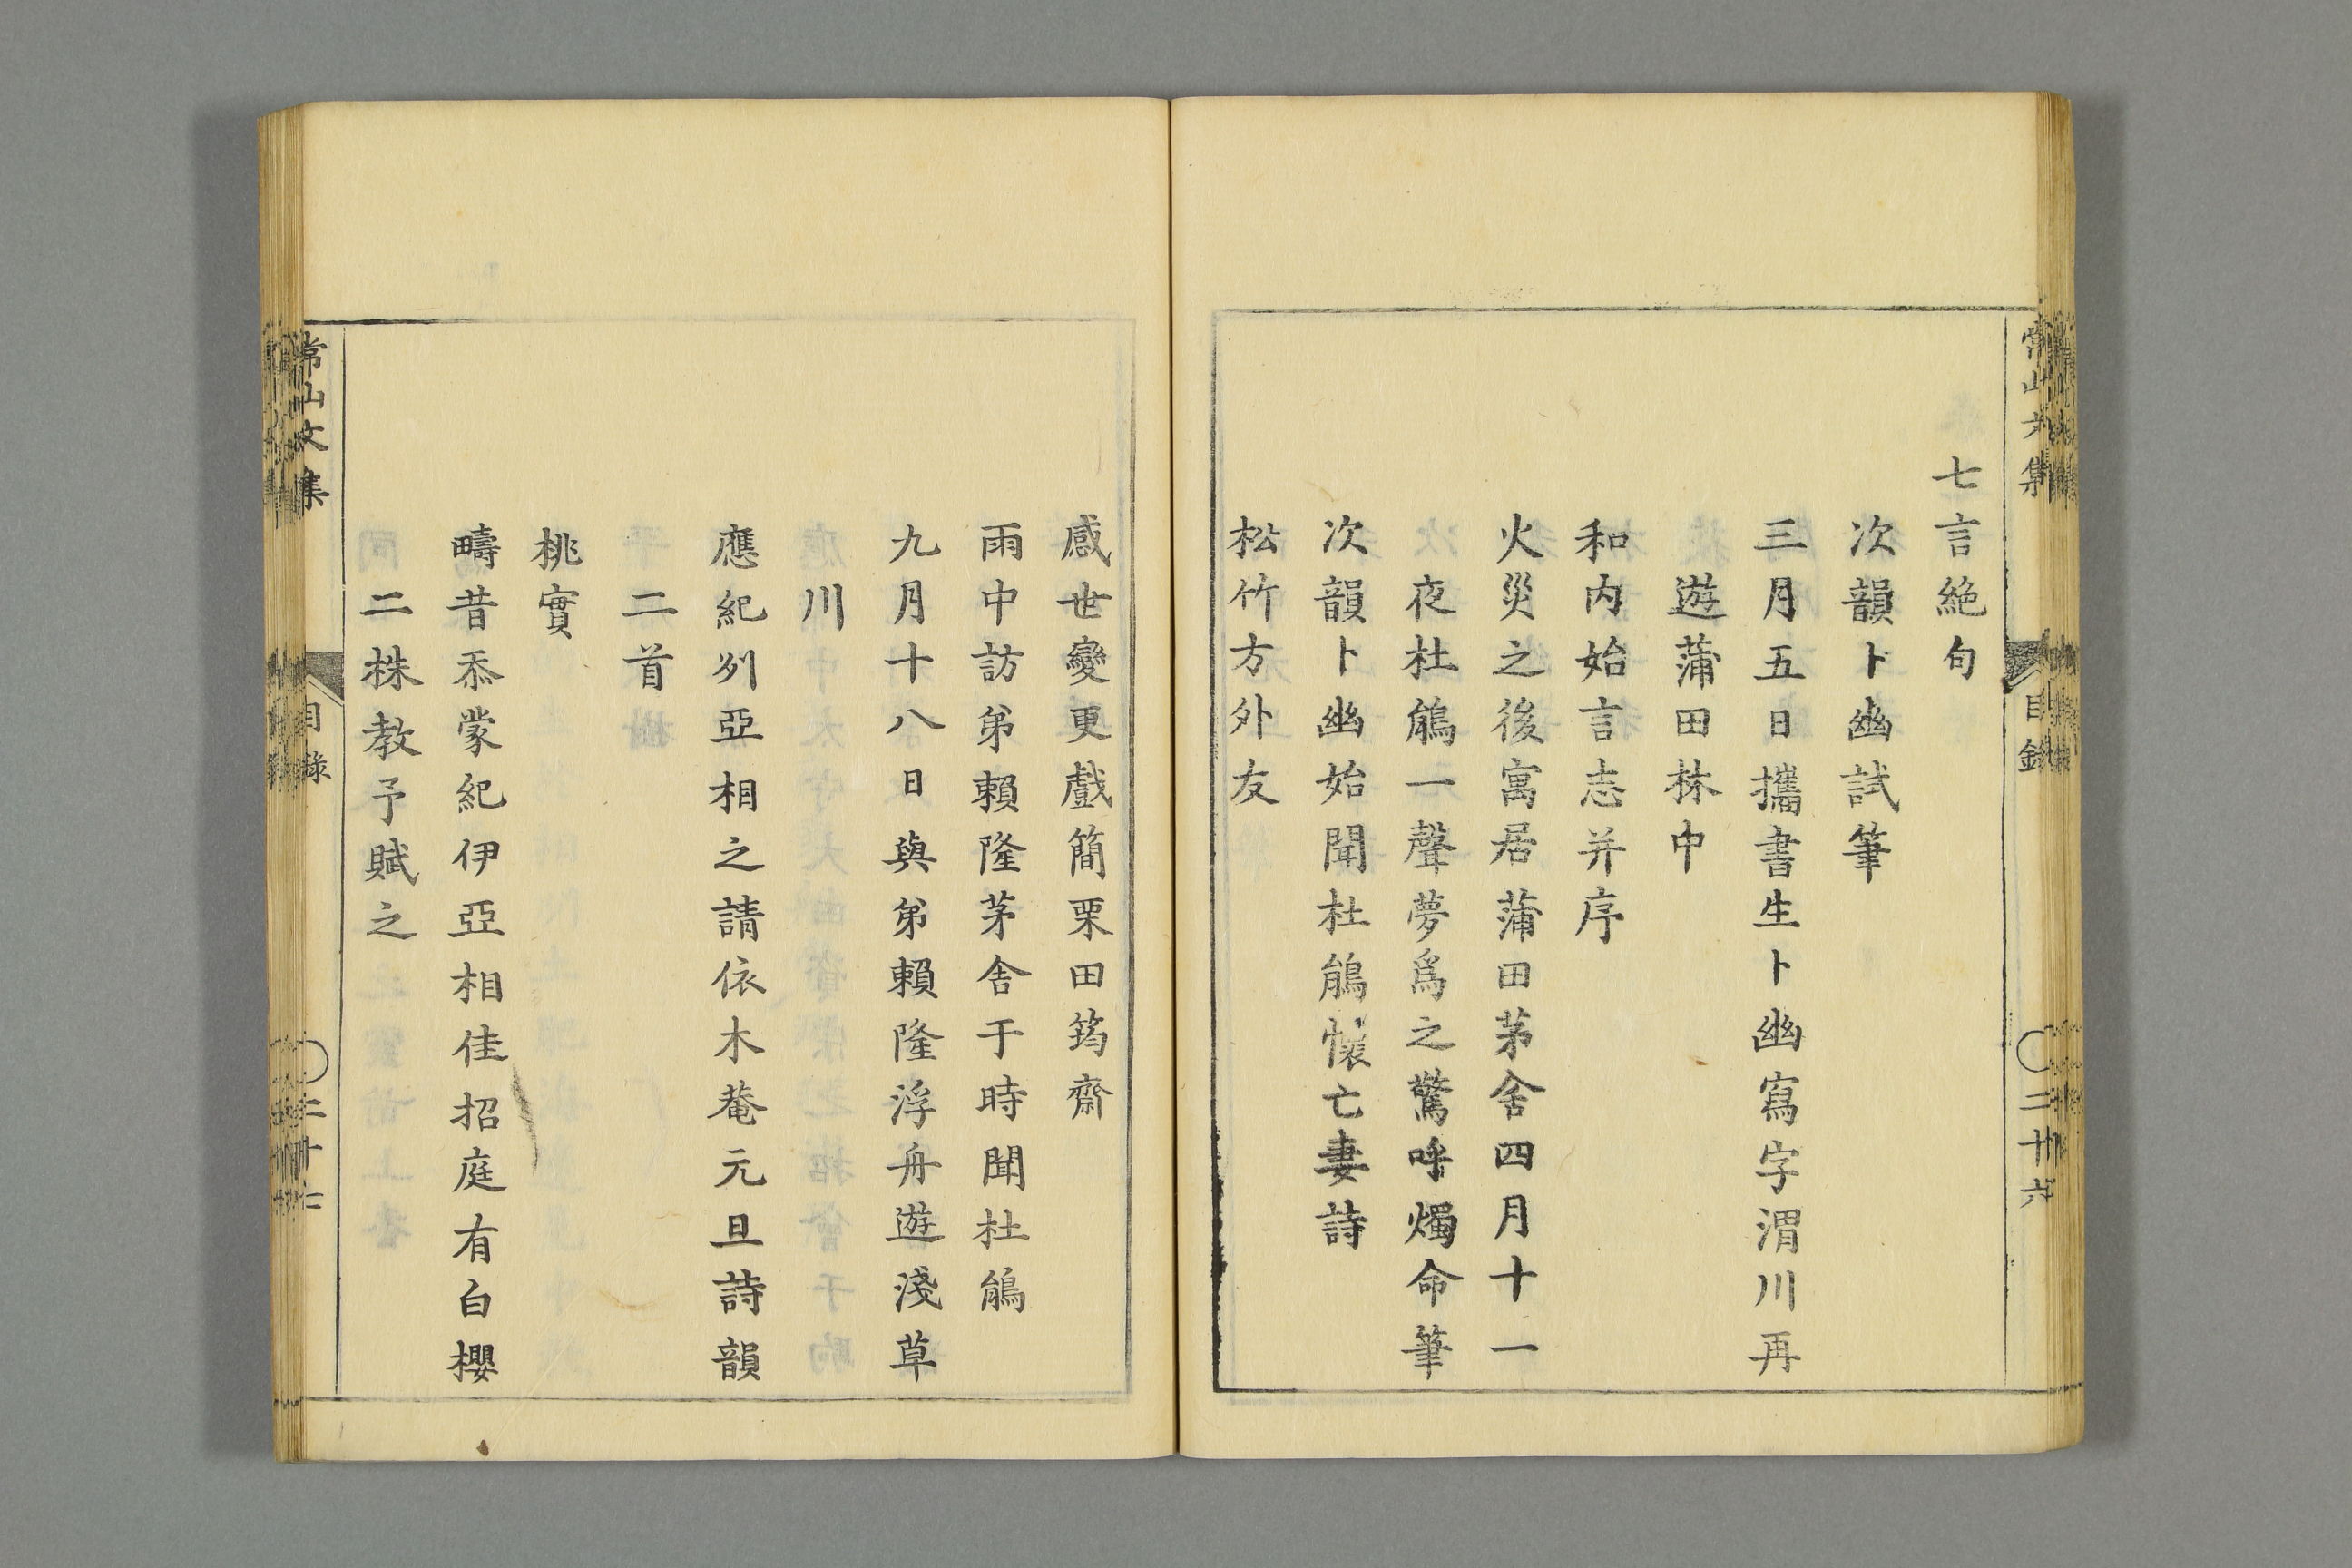 常山文集
目錄
二十六
七言絶句
次韻卜幽試筆
三月五日攜書生卜幽寫字渭川再
遊蒲田林中
和内始言志并序
火災之後寓居蒲田茅舍四月十一
夜杜鵑一聲夢爲之驚呼燭命筆
次韻卜幽始聞杜鵑懷亡妻詩
松竹方外友
感世變更戲簡栗田筠齋
雨中訪弟賴隆茅舍于時聞杜鵑
九月十八日與弟賴隆浮舟遊淺草
川
應紀列亞相之請依木菴元旦詩韻
二首
桃實
疇昔忝蒙紀伊亞相佳招庭有白櫻
二株教予賦之
常山文集
目錄